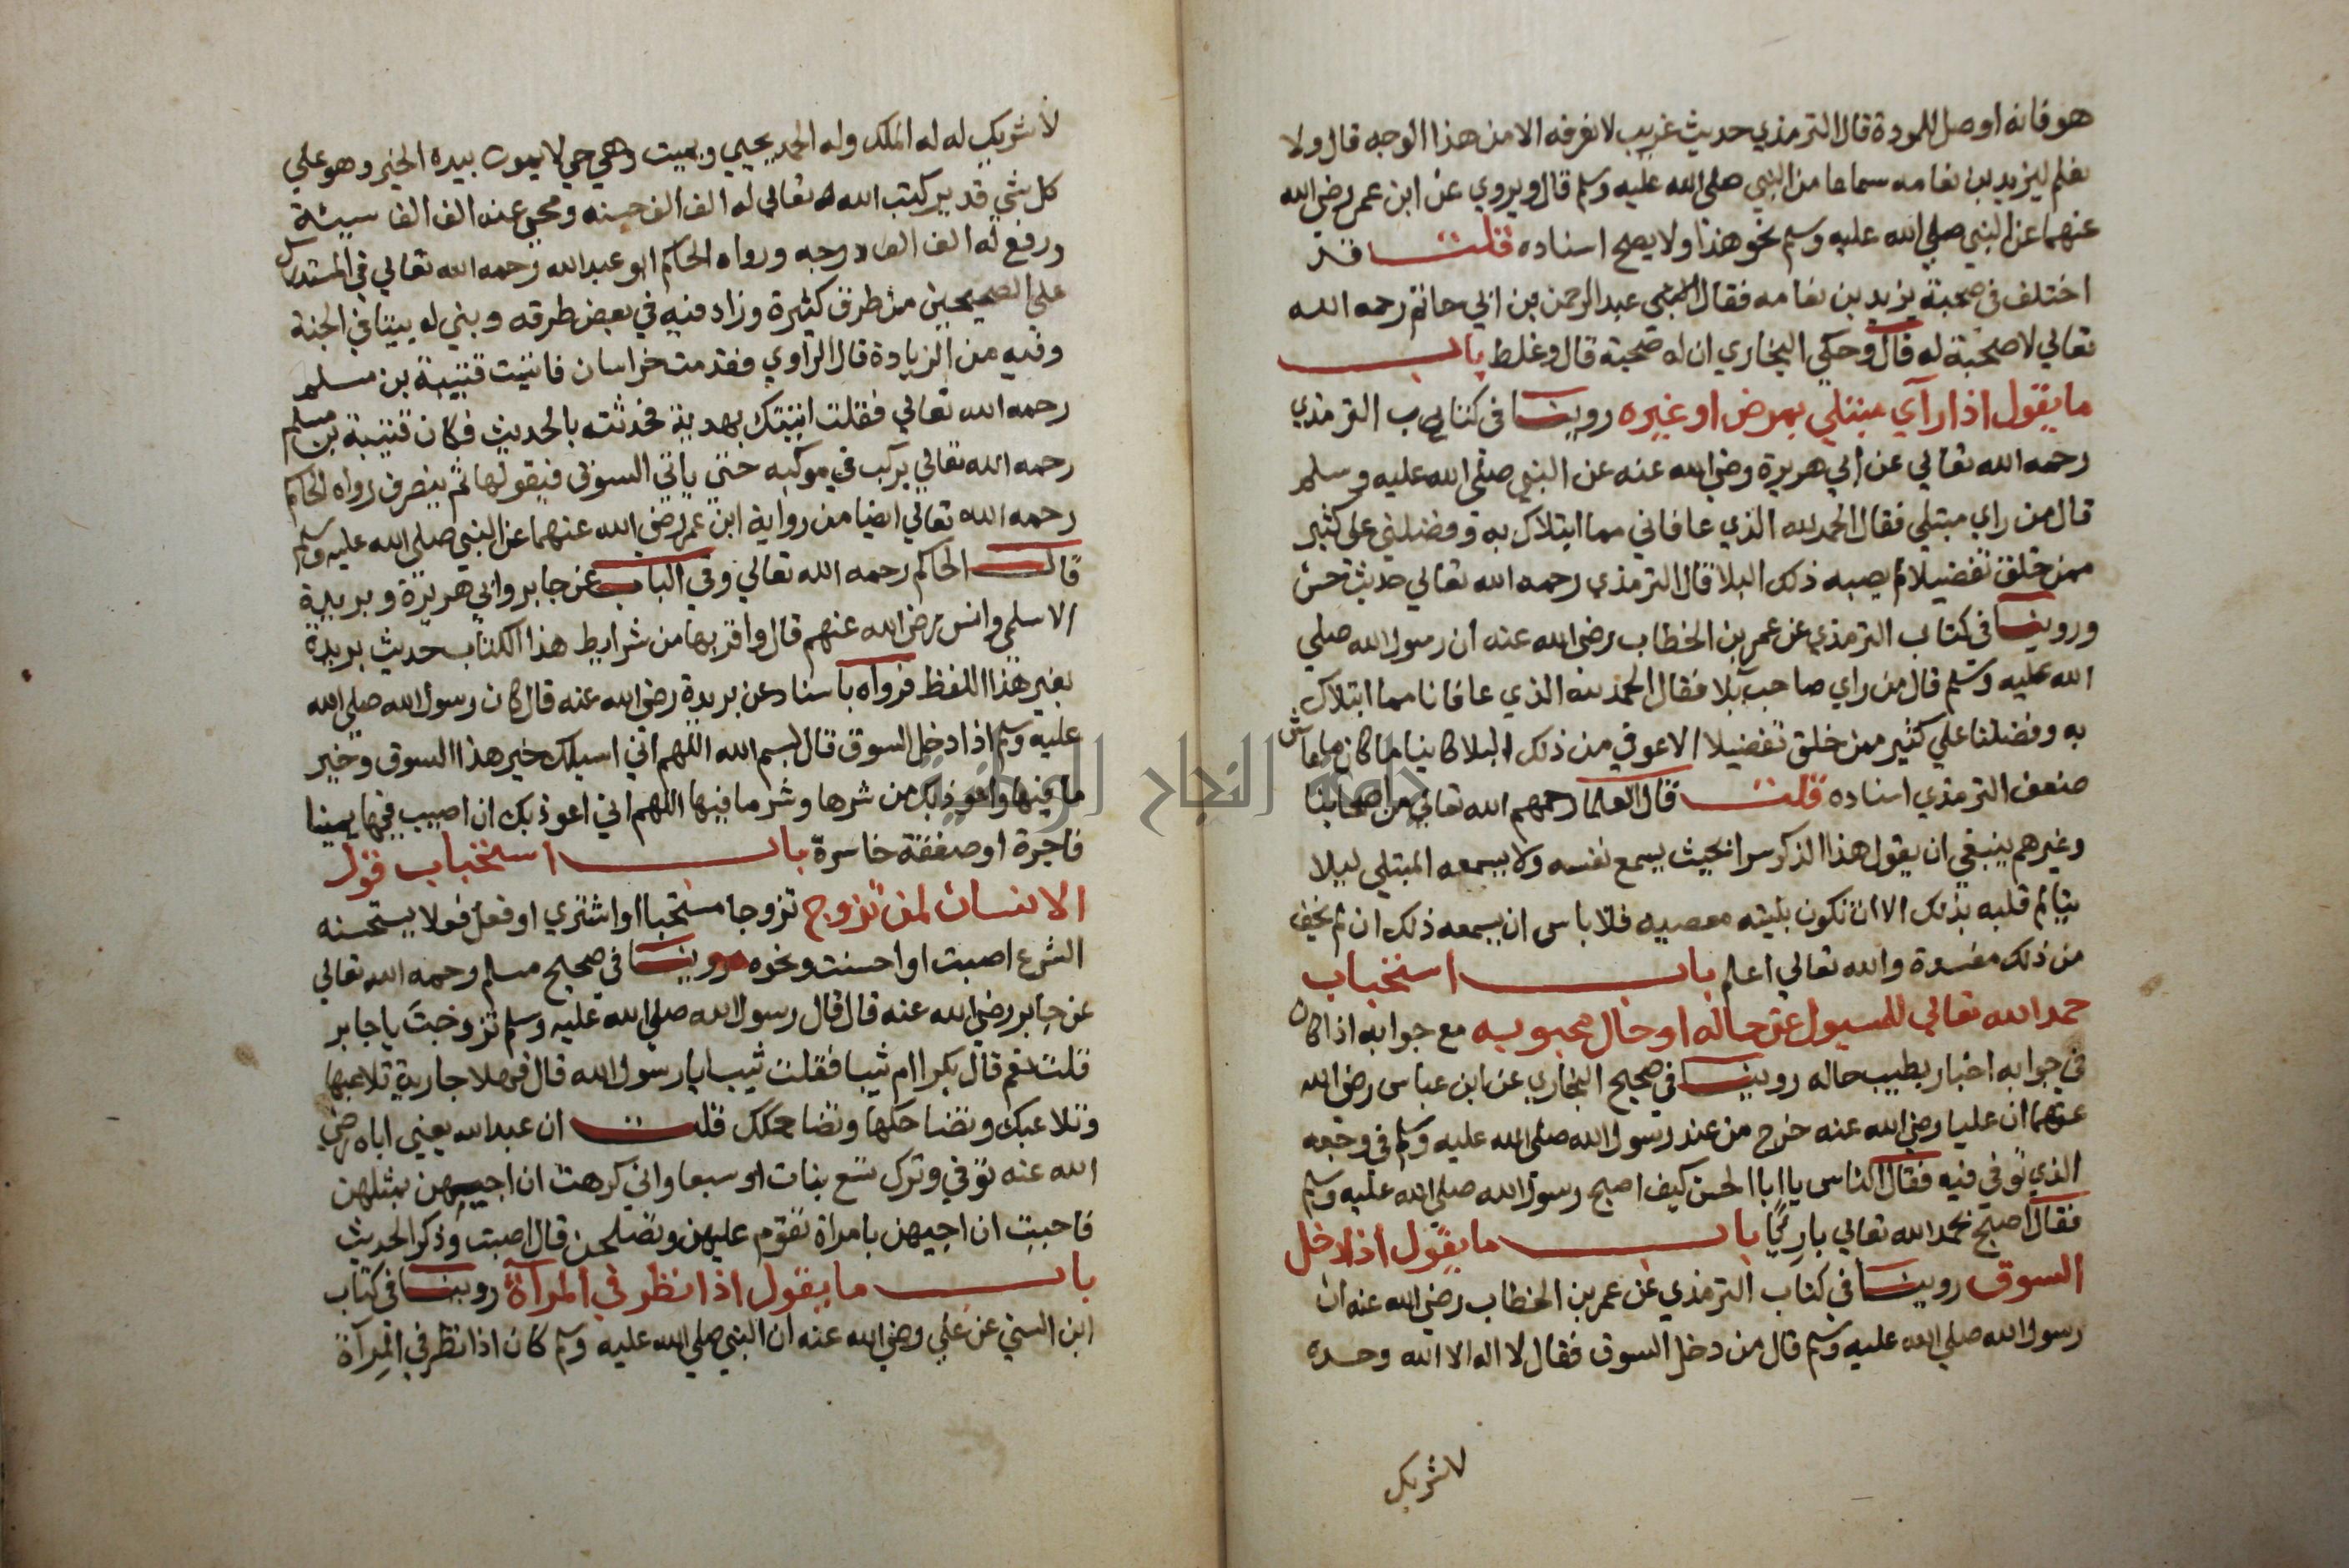 هو فانه اوصل للمودة قال الترمذي حديث غريب لا نعرفه الا من هذا الوجه قال ولا
نعلم ليزيد بن نعامه سماعا من النبي صلى الله عليه وسلم قال ويروي عن ابن عمر رضي الله
عنهما عن النبي صلي الله عليه وسلم نحو هذا ولا يصح اسناده قلت قد
اختلف في صحبة يزيد بن نعامه فقال عبد الرحمن بن ابي حاتم رحمه الله
تعالي لا صحبة له قال وحكي البخاري ان له صحبة قال وغلط باب
ما يقول اذا رآي مبتلي بمرض او غيره روينا في كتاب الترمذي
رحمه الله تعالي عن ابي هريرة رضي الله عنه عن النبي صلي الله عليه وسلم
قال من راي مبتلي فقال الحمد لله الذي عافاني مما ابتلاك به وفضلني علي كثير
ممن خلق تفضيلا لم يصبه ذلك البلا قال الترمذي رحمه الله تعالي حديث حسن
وروينا في كتاب الترمذي عن عمر بن الخطاب رضي الله عنه ان رسول الله صلي
الله عليه وسلم قال من راي صاحب بلا فقال الحمد لله الذي عافانا مما ابتلاك
به وفضلنا علي كثير ممن خلق تفضيلا الا عوفي من ذلك البلا كاينا ما كان ما عاش
ضعف الترمذي اسناده قلت قال العلما رحمهم الله تعالي من اصحابنا
وغيرهم ينبغي ان يقول هذا الذكر سرا بحيث يسمع نفسه ولا يسمعه المبتلي ليلا
يتالم قلبه بذلك الا ان تكون بليته معصيه فلا باس ان يسمعه ذلك ان لم يخف
من ذلك مفسدة والله تعالي اعلم باب استحباب
حمد الله تعالي للمسيول عن حاله او حال محبوبه مع جوابه اذا كان
في جوابه اخبار بطيب حاله روينا في صحيح البخاري عن ابن عباس رضي الله
عنهما ان عليا رضي الله عنه خرج من عند رسول الله صلي الله عليه وسلم في وجعه
الذي توفي فيه فقال الناس يا ابا الحسن كيف اصبح رسول الله صلي الله عليه وسلم
فقال اصبح بحمد الله تعالي بارئا باب ما يقول اذا دخل
السوق روينا في كتاب الترمذي عن عمر بن الخطاب رضي الله عنه ان
رسول الله صلي الله عليه وسلم قال من دخل السوق فقال لا اله الا الله وحده
لا شريك
لا شريك له له الملك وله الحمد يحيي ويميت وهو حي لا يموت بيده الخير وهو علي
كل شي قدير كتب الله تعالي له الف الف حسنه ومحي عنه الف الف سيئة
ورفع له الف الف درجه ورواه الحاكم ابو عبد الله رحمه الله تعالي في المستدرك
علي الصحيحين من طرق كثيرة وزاد فيه في بعض طرقه وبني له بيتا في الجنة
وفيه من الزيادة قال الراوي فقدمت خراسان فاتيت قتيبة بن مسلم
رحمه الله تعالي فقلت اتيتك بهدية فحدثته بالحديث فكان قتيبة بن مسلم
رحمه الله تعالي يركب في موكبه حتي ياتي السوق فيقولها ثم ينصرف رواه الحاكم
رحمه الله تعالي ايضا من رواية ابن عمر رضي الله عنهما عن النبي صلي الله عليه وسلم
قال الحاكم رحمه الله تعالي وفي الباب عن جابر وابي هريرة وبريدة
الاسلمي وانس رضي الله عنهم قال واقربها من شرايط هذا الكتاب حديث بريدة
بغير هذا اللفظ فرواه باسناد عن بريدة رضي الله عنه قال كان رسول الله صلي الله
عليه وسلم اذا دخل السوق قال بسم الله اللهم اني اسيلك خير هذا السوق وخير
ما فيها واعوذ بك من شرها وشر ما فيها اللهم اني اعوذ بك ان اصيب فيها يمينا
فاجرة او صفقة خاسرة باب استحباب قول
الانسان لمن تزوج تزوجا مستحبا او اشتري او فعل فعلا يستحسنه
الشرع اصبت او احسنت ونحوه روينا في صحيح مسلم رحمه الله تعالي
عن جابر رضي الله عنه قال قال رسول الله صلي الله عليه وسلم تزوجت يا جابر
قلت نعم قال بكرا ام ثيبا فقلت ثيب يا رسول الله قال فهلا جارية تلاعبها
وتلاعبك وتضاحكها وتضاحكك قلت ان عبد الله يعني اباه رضي
الله عنه توفي وترك تسع بنات او سبعا واني كرهت ان اجيبهن بمثلهن
فاحببت ان اجيهن بامراة تقوم عليهن وتصلحهن قال اصبت وذكر الحديث
باب ما يقول اذا نظر في المرآة روينا في كتاب
ابن السني عن علي رضي الله عنه ان النبي صلي الله عليه وسلم كان اذا نظر في المرآة
جامعة النجاح الوطنية